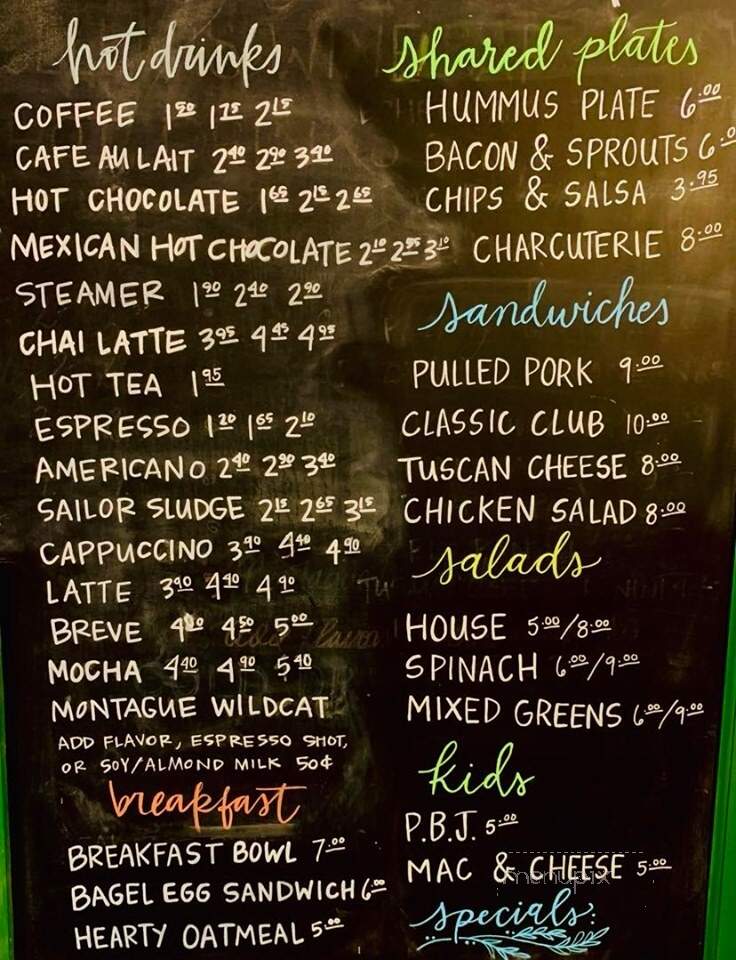 hot drinks
COFFEE 1.50 1.75 2.15
CAFE AU LAIT 2.40 2.90 3.40
HOT CHOCOLATE 1.65 2.15 2.65
MEXICAN HOT CHOCOLATE 2.10 2.55 3.10
STEAMER 1.90 2.40 2.90
CHAI LATTE 3.95 4.45 4.95
HOT TEA 1.95
ESPRESSO 1.20 1.65 2.10
AMERICANO 2.40 2.90 3.40
SAILOR SLUDGE 2.15 2.65 3.15
CAPPUCCINO 3.90 4.40 4.90
LATTE 3.90 4.40 4.90
BREVE 4.50 5.00
MOCHA 4.40 4.90 5.40
MONTAGUE WILDCAT
ADD FLAVOR, ESPRESSO SHOT,
OR SOY/ALMOND MILK 50¢
breakfast
BREAKFAST BOWL 7.00
BAGEL EGG SANDWICH 6.00
HEARTY OATMEAL 5.00
shared plates
HUMMUS PLATE 6.00
BACON & SPROUTS
CHIPS & SALSA 3.95
CHARCUTERIE 8.00
sandwiches
PULLED PORK 9.00
CLASSIC CLUB 10.00
TUSCAN CHEESE 8.00
CHICKEN SALAD 8.00
salads
HOUSE 5.00/8.00
SPINACH 6.00/9.00
MIXED GREENS 6.00/9.00
kids
P.B.J. 5.00
MAC & CHEESE 5.00
menupix
specials: